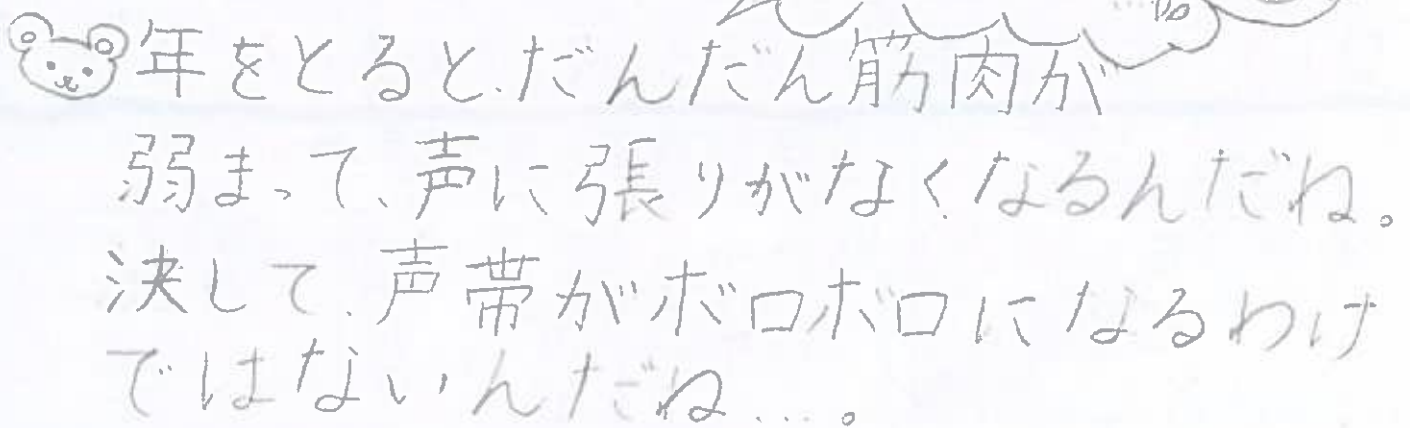 年をとると、だんだん筋肉が
弱まって、声に張りがなくなるんだね。
決して、声帯がボロボロになるわけ
ではないんだね...。